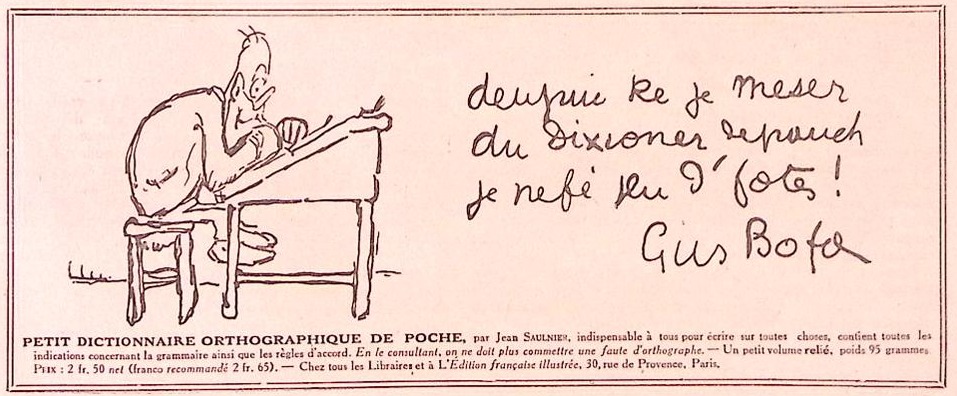 deupui ke je meser
du dixioner depouch
je nefé plu d'fotes !
Gus Bofa
PETIT DICTIONNAIRE ORTHOGRAPHIQUE DE POCHE, par Jean SAULNIER, indispensable à tous pour écrire sur toutes choses, contient toutes les
indications concernant la grammaire ainsi que les règles d'accord. En le consultant, on ne doit plus commettre une faute d'orthographe. — Un petit volume relié, poids 95 grammes
PRIX : 2 fr. 50 net (franco recommandé 2 fr. 65). — Chez tous les Libraires et à L'Edition française illustrée, 30, rue de Provence, Paris.